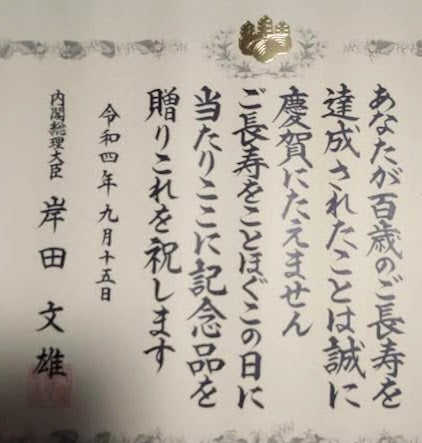 あなたが百歳のご長寿を
達成されたことは誠に
慶賀にたえません
ご長寿をことほぐこの日に
当たりここに記念品を
贈りこれを祝します
令和四年九月十五日
内閣総理大臣 岸田文雄